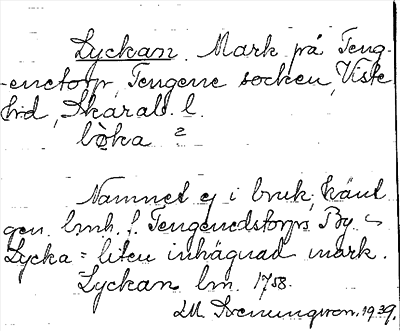 Lyckan. Mark på Teng-
-enetorp, Tengene socken, Viste
hd, Skarab. l.
löka 2
Namnet ej i bruk, känt
gen. lmh. f. Tengenedstorps By.
Lycka = liten inhägnad mark.
Lyckan lm. 1758.
M. Svenungsson. 1939.